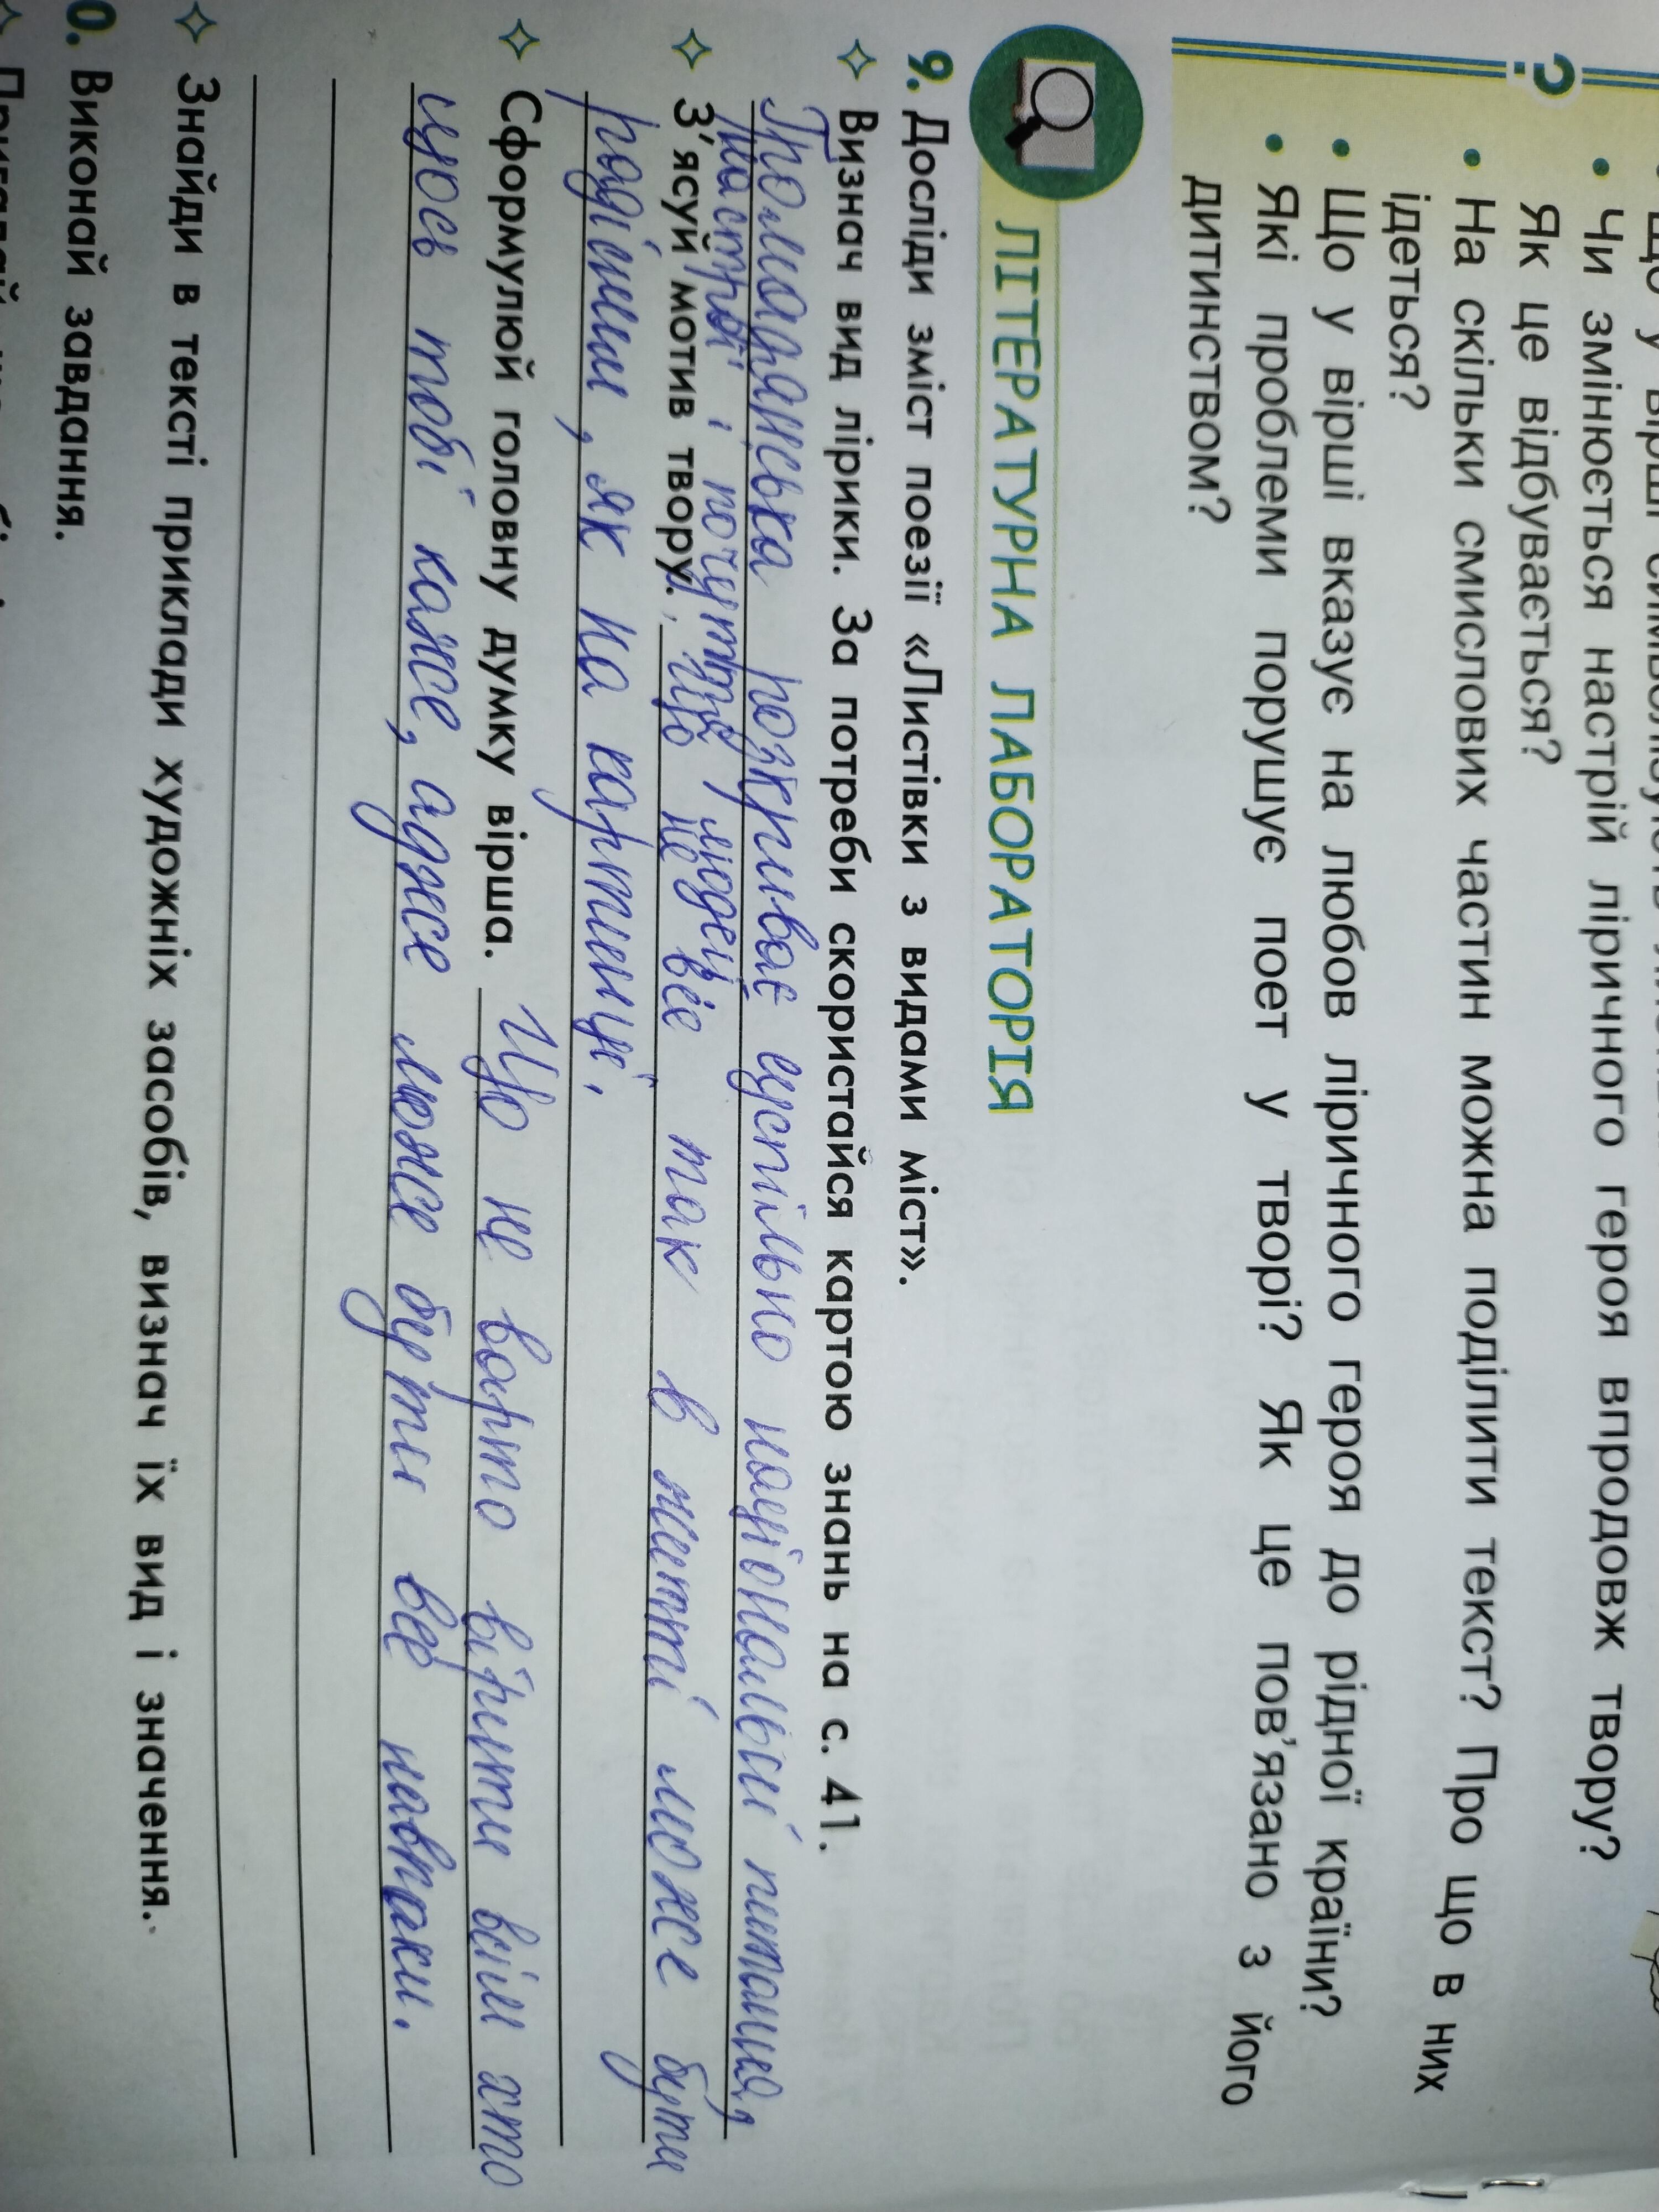 • Чи змінюється настрій ліричного героя впродовж твору?
Як це відбувається?
• На скільки смислових частин можна поділити текст? Про що в них
ідеться?
• Що у вірші вказує на любов ліричного героя до рідної країни?
• Які проблеми порушує поет у творі? Як це пов'язано з його
дитинством?
?
ЛІТЕРАТУРНА ЛАБОРАТОРІЯ
9. Досліди зміст поезії «Листівки з видами міст».
✧ Визнач вид лірики. За потреби скористайся картою знань на с. 41.
Громадянська розкриває суспільно національні питання,
настрої і почуття людей.
✧ З'ясуй мотив твору. Що не все так в житті може бути
радісним, як на картинці.
✧ Сформулюй головну думку вірша. Що не варто вірити всім хто
щось тобі каже, адже може бути все навпаки.
✧ Знайди в тексті приклади художніх засобів, визнач їх вид і значення.
0. Виконай завдання.